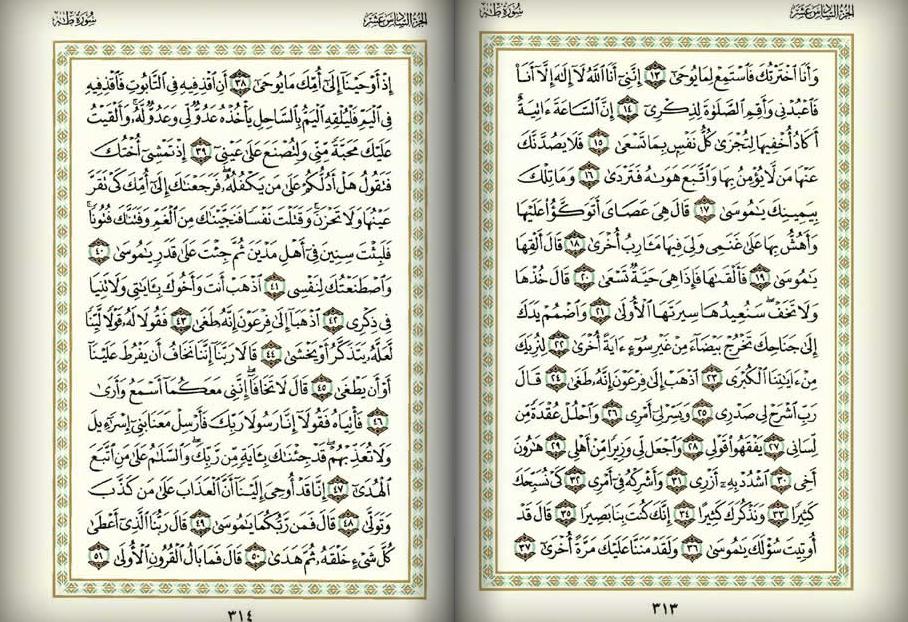 الجزء السادس عشر
سورة طه
وَأَنَا ٱخْتَرْتُكَ فَٱسْتَمِعْ لِمَا يُوحَىٰٓ ١٣ إِنَّنِىٓ أَنَا ٱللَّهُ لَآ إِلَٰهَ إِلَّآ أَنَا۠
فَٱعْبُدْنِى وَأَقِمِ ٱلصَّلَوٰةَ لِذِكْرِىٓ ١٤ إِنَّ ٱلسَّاعَةَ ءَاتِيَةٌ
أَكَادُ أُخْفِيهَا لِتُجْزَىٰ كُلُّ نَفْسٍۭ بِمَا تَسْعَىٰ ١٥ فَلَا يَصُدَّنَّكَ
عَنْهَا مَن لَّا يُؤْمِنُ بِهَا وَٱتَّبَعَ هَوَىٰهُ فَتَرْدَىٰ ١٦ وَمَا تِلْكَ
بِيَمِينِكَ يَٰمُوسَىٰ ١٧ قَالَ هِىَ عَصَاىَ أَتَوَكَّؤُا۟ عَلَيْهَا
وَأَهُشُّ بِهَا عَلَىٰ غَنَمِى وَلِىَ فِيهَا مَـَٔارِبُ أُخْرَىٰ ١٨ قَالَ أَلْقِهَا
يَٰمُوسَىٰ ١٩ فَأَلْقَىٰهَا فَإِذَا هِىَ حَيَّةٌ تَسْعَىٰ ٢٠ قَالَ خُذْهَا
وَلَا تَخَفْ ۖ سَنُعِيدُهَا سِيرَتَهَا ٱلْأُولَىٰ ٢١ وَٱضْمُمْ يَدَكَ
إِلَىٰ جَنَاحِكَ تَخْرُجْ بَيْضَآءَ مِنْ غَيْرِ سُوٓءٍ ءَايَةً أُخْرَىٰ ٢٢ لِنُرِيَكَ
مِنْ ءَايَٰتِنَا ٱلْكُبْرَى ٢٣ ٱذْهَبْ إِلَىٰ فِرْعَوْنَ إِنَّهُۥ طَغَىٰ ٢٤ قَالَ
رَبِّ ٱشْرَحْ لِى صَدْرِى ٢٥ وَيَسِّرْ لِىٓ أَمْرِى ٢٦ وَٱحْلُلْ عُقْدَةً مِّن
لِّسَانِى ٢٧ يَفْقَهُوا۟ قَوْلِى ٢٨ وَٱجْعَل لِّى وَزِيرًا مِّنْ أَهْلِى ٢٩ هَٰرُونَ
أَخِى ٣٠ ٱشْدُدْ بِهِۦٓ أَزْرِى ٣١ وَأَشْرِكْهُ فِىٓ أَمْرِى ٣٢ كَىْ نُسَبِّحَكَ
كَثِيرًا ٣٣ وَنَذْكُرَكَ كَثِيرًا ٣٤ إِنَّكَ كُنتَ بِنَا بَصِيرًا ٣٥ قَالَ قَدْ
أُوتِيتَ سُؤْلَكَ يَٰمُوسَىٰ ٣٦ وَلَقَدْ مَنَنَّا عَلَيْكَ مَرَّةً أُخْرَىٰٓ ٣٧
٣١٣
الجزء السادس عشر
سورة طه
إِذْ أَوْحَيْنَآ إِلَىٰٓ أُمِّكَ مَا يُوحَىٰٓ ٣٨ أَنِ ٱقْذِفِيهِ فِى ٱلتَّابُوتِ فَٱقْذِفِيهِ
فِى ٱلْيَمِّ فَلْيُلْقِهِ ٱلْيَمُّ بِٱلسَّاحِلِ يَأْخُذْهُ عَدُوٌّ لِّى وَعَدُوٌّ لَّهُۥ ۚ وَأَلْقَيْتُ
عَلَيْكَ مَحَبَّةً مِّنِّى وَلِتُصْنَعَ عَلَىٰ عَيْنِىٓ ٣٩ إِذْ تَمْشِىٓ أُخْتُكَ
فَتَقُولُ هَلْ أَدُلُّكُمْ عَلَىٰ مَن يَكْفُلُهُۥ ۖ فَرَجَعْنَٰكَ إِلَىٰٓ أُمِّكَ كَىْ تَقَرَّ
عَيْنُهَا وَلَا تَحْزَنَ ۚ وَقَتَلْتَ نَفْسًا فَنَجَّيْنَٰكَ مِنَ ٱلْغَمِّ وَفَتَنَّٰكَ فُتُونًا ۚ
فَلَبِثْتَ سِنِينَ فِىٓ أَهْلِ مَدْيَنَ ثُمَّ جِئْتَ عَلَىٰ قَدَرٍ يَٰمُوسَىٰ ٤٠
وَٱصْطَنَعْتُكَ لِنَفْسِى ٤١ ٱذْهَبْ أَنتَ وَأَخُوكَ بِـَٔايَٰتِى وَلَا تَنِيَا
فِى ذِكْرِى ٤٢ ٱذْهَبَآ إِلَىٰ فِرْعَوْنَ إِنَّهُۥ طَغَىٰ ٤٣ فَقُولَا لَهُۥ قَوْلًا لَّيِّنًا
لَّعَلَّهُۥ يَتَذَكَّرُ أَوْ يَخْشَىٰ ٤٤ قَالَا رَبَّنَآ إِنَّنَا نَخَافُ أَن يَفْرُطَ عَلَيْنَآ
أَوْ أَن يَطْغَىٰ ٤٥ قَالَ لَا تَخَافَآ ۖ إِنَّنِى مَعَكُمَآ أَسْمَعُ وَأَرَىٰ
٤٦ فَأْتِيَاهُ فَقُولَآ إِنَّا رَسُولَا رَبِّكَ فَأَرْسِلْ مَعَنَا بَنِىٓ إِسْرَٰٓءِيلَ
وَلَا تُعَذِّبْهُمْ ۖ قَدْ جِئْنَٰكَ بِـَٔايَةٍ مِّن رَّبِّكَ ۖ وَٱلسَّلَٰمُ عَلَىٰ مَنِ ٱتَّبَعَ
ٱلْهُدَىٰٓ ٤٧ إِنَّا قَدْ أُوحِىَ إِلَيْنَآ أَنَّ ٱلْعَذَابَ عَلَىٰ مَن كَذَّبَ
وَتَوَلَّىٰ ٤٨ قَالَ فَمَن رَّبُّكُمَا يَٰمُوسَىٰ ٤٩ قَالَ رَبُّنَا ٱلَّذِىٓ أَعْطَىٰ
كُلَّ شَىْءٍ خَلْقَهُۥ ثُمَّ هَدَىٰ ٥٠ قَالَ فَمَا بَالُ ٱلْقُرُونِ ٱلْأُولَىٰ ٥١
٣١٤